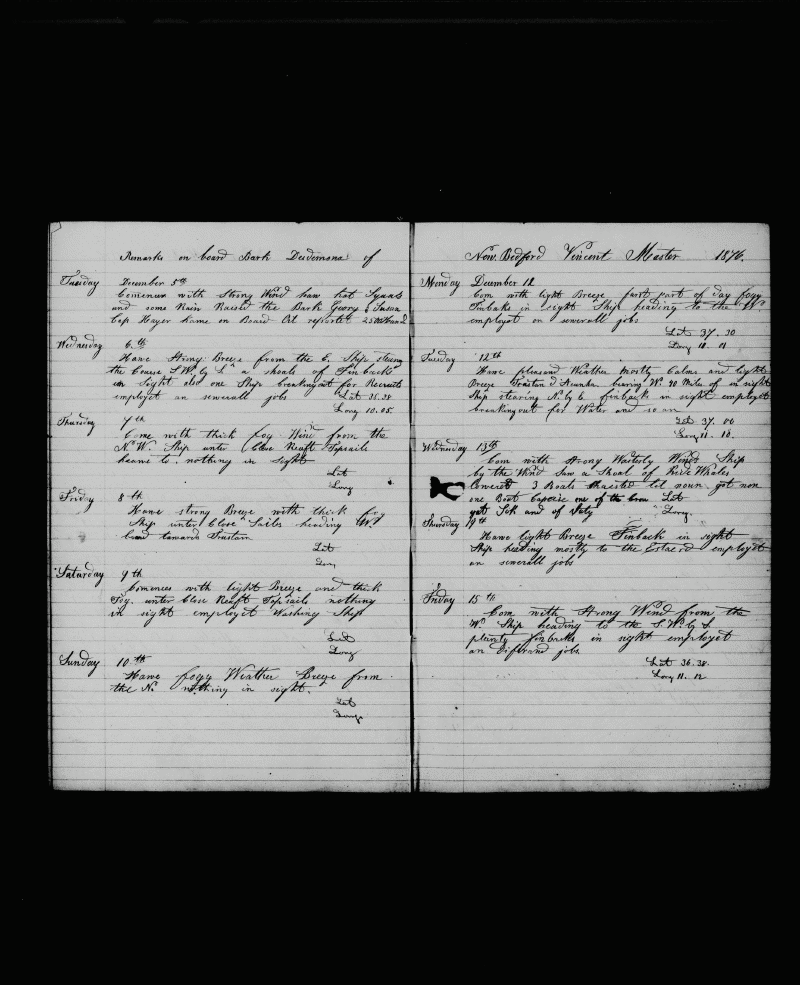 Remarks on board Bark Desdemona of
Tuesday December 5th
Comences with Strong Wind have hat Squals
and some Rain Raised the Bark Georg & Susan
Cap Heyer Kame on Board Oil reportet 25
Wednesday 6th
Have Strong Breeze from the E. Ship steering
the Course S.W. by S. a shoals of Finbacks
in Sight also one Ship breaking out for Recruits
employet on severall jobs Lat 36.38
Long 10.05
Thursday 7th
Come with thick fog Wind from the
N.W. Ship unter Close Reaft Topsails
heave to nothing in Sight
Lat
Long
Friday 8th
Have strong Breeze with thick fog
Ship unter Close Sailes heading W
land towards Tristan
Lat
Long
Saturday 9th
Comences with light Breeze and thick
Fog unter Close Reaft Topsails nothing
in sight employet Washing Ship
Lat
Long
Sunday 10th
Have fogy Weather Breeze from
the N. nothing in sight.
Lat
Long
New Bedford Vincent Master 1876.
Monday December 11
Com with light Breeze first part of day fogy
Finbaks in sight Ship heading to the W
employet on severall jobs
Lat 37.30
Long 10.01
Tuesday 12th
Have pleasand Weather mostly Calms and light
Breeze Tristan d Acunha bearing W. 40 Miles of in sight
Ship stearing N. by E. finback in sight employet
breaking out for Water and so on
Lat 37.00
Long 11.18.
Wednesday 13th
Com with strong Westerly Winds Ship
by the Wind Saw a Shoal of Rite Whales
Lowered 3 Boats chaisted til noun got non
one Boat Capsise one of the
got Sick and of Duty
Lat
Long
Thursday 14th
Have light Breeze Finback in sight
Ship heading mostly to the Estaerd employet
on severall jobs
Friday 15th
Com with Strong Wind from the
W. Ship heading to the S.W. by S
plenty finbaks in sight employet
on Diferand jobs.
Lat 36.38.
Long 11.12